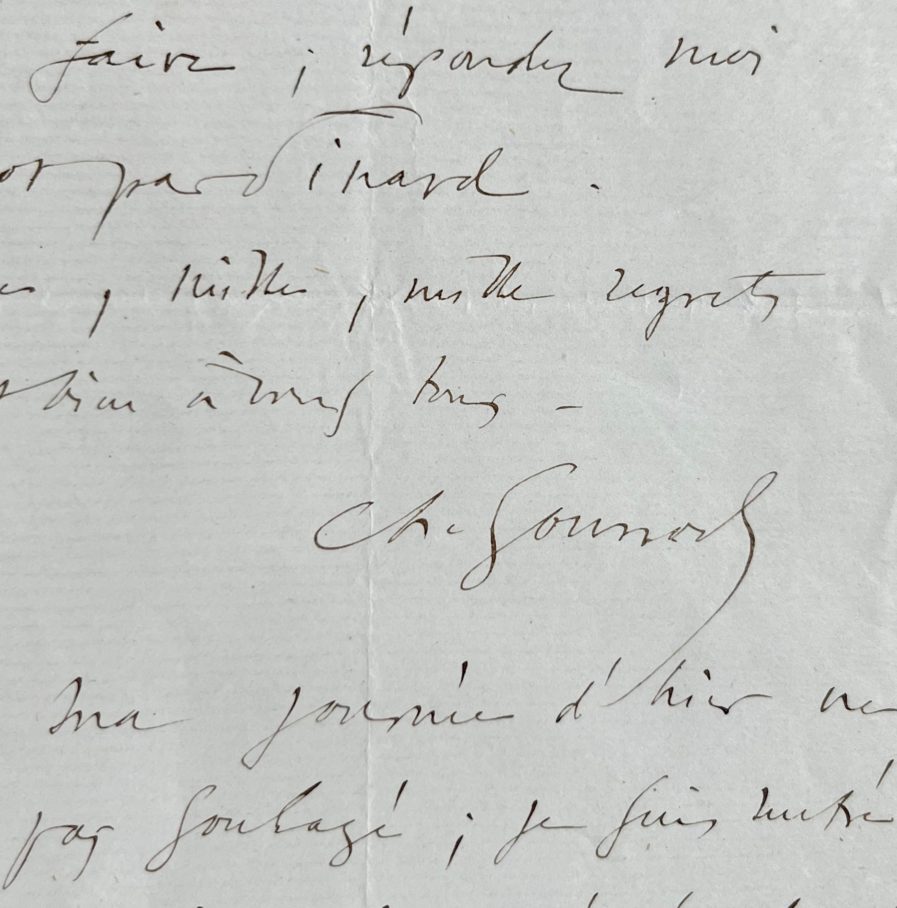 faire ; répondez moi
par Dinard .
, mille , mille regrets
bien à vous tous -
Ch. Gounod
Ma journée d'hier
pas soulagé ; je suis rentré